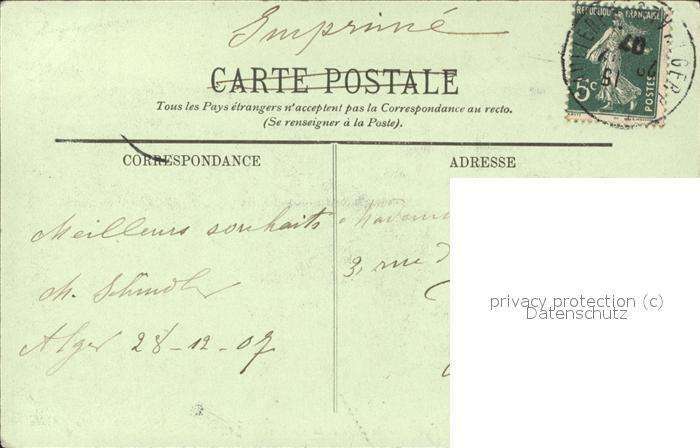 Imprimé
REPUBLIQUE FRANÇAISE
5c
POSTES
CARTE POSTALE
Tous les Pays étrangers n'acceptent pas la Correspondance au recto.
(Se renseigner à la Poste).
CORRESPONDANCE
ADRESSE
Meilleurs souhaits
M. Schindler
Alger 28-12-07
3, rue
privacy protection (c)
Datenschutz